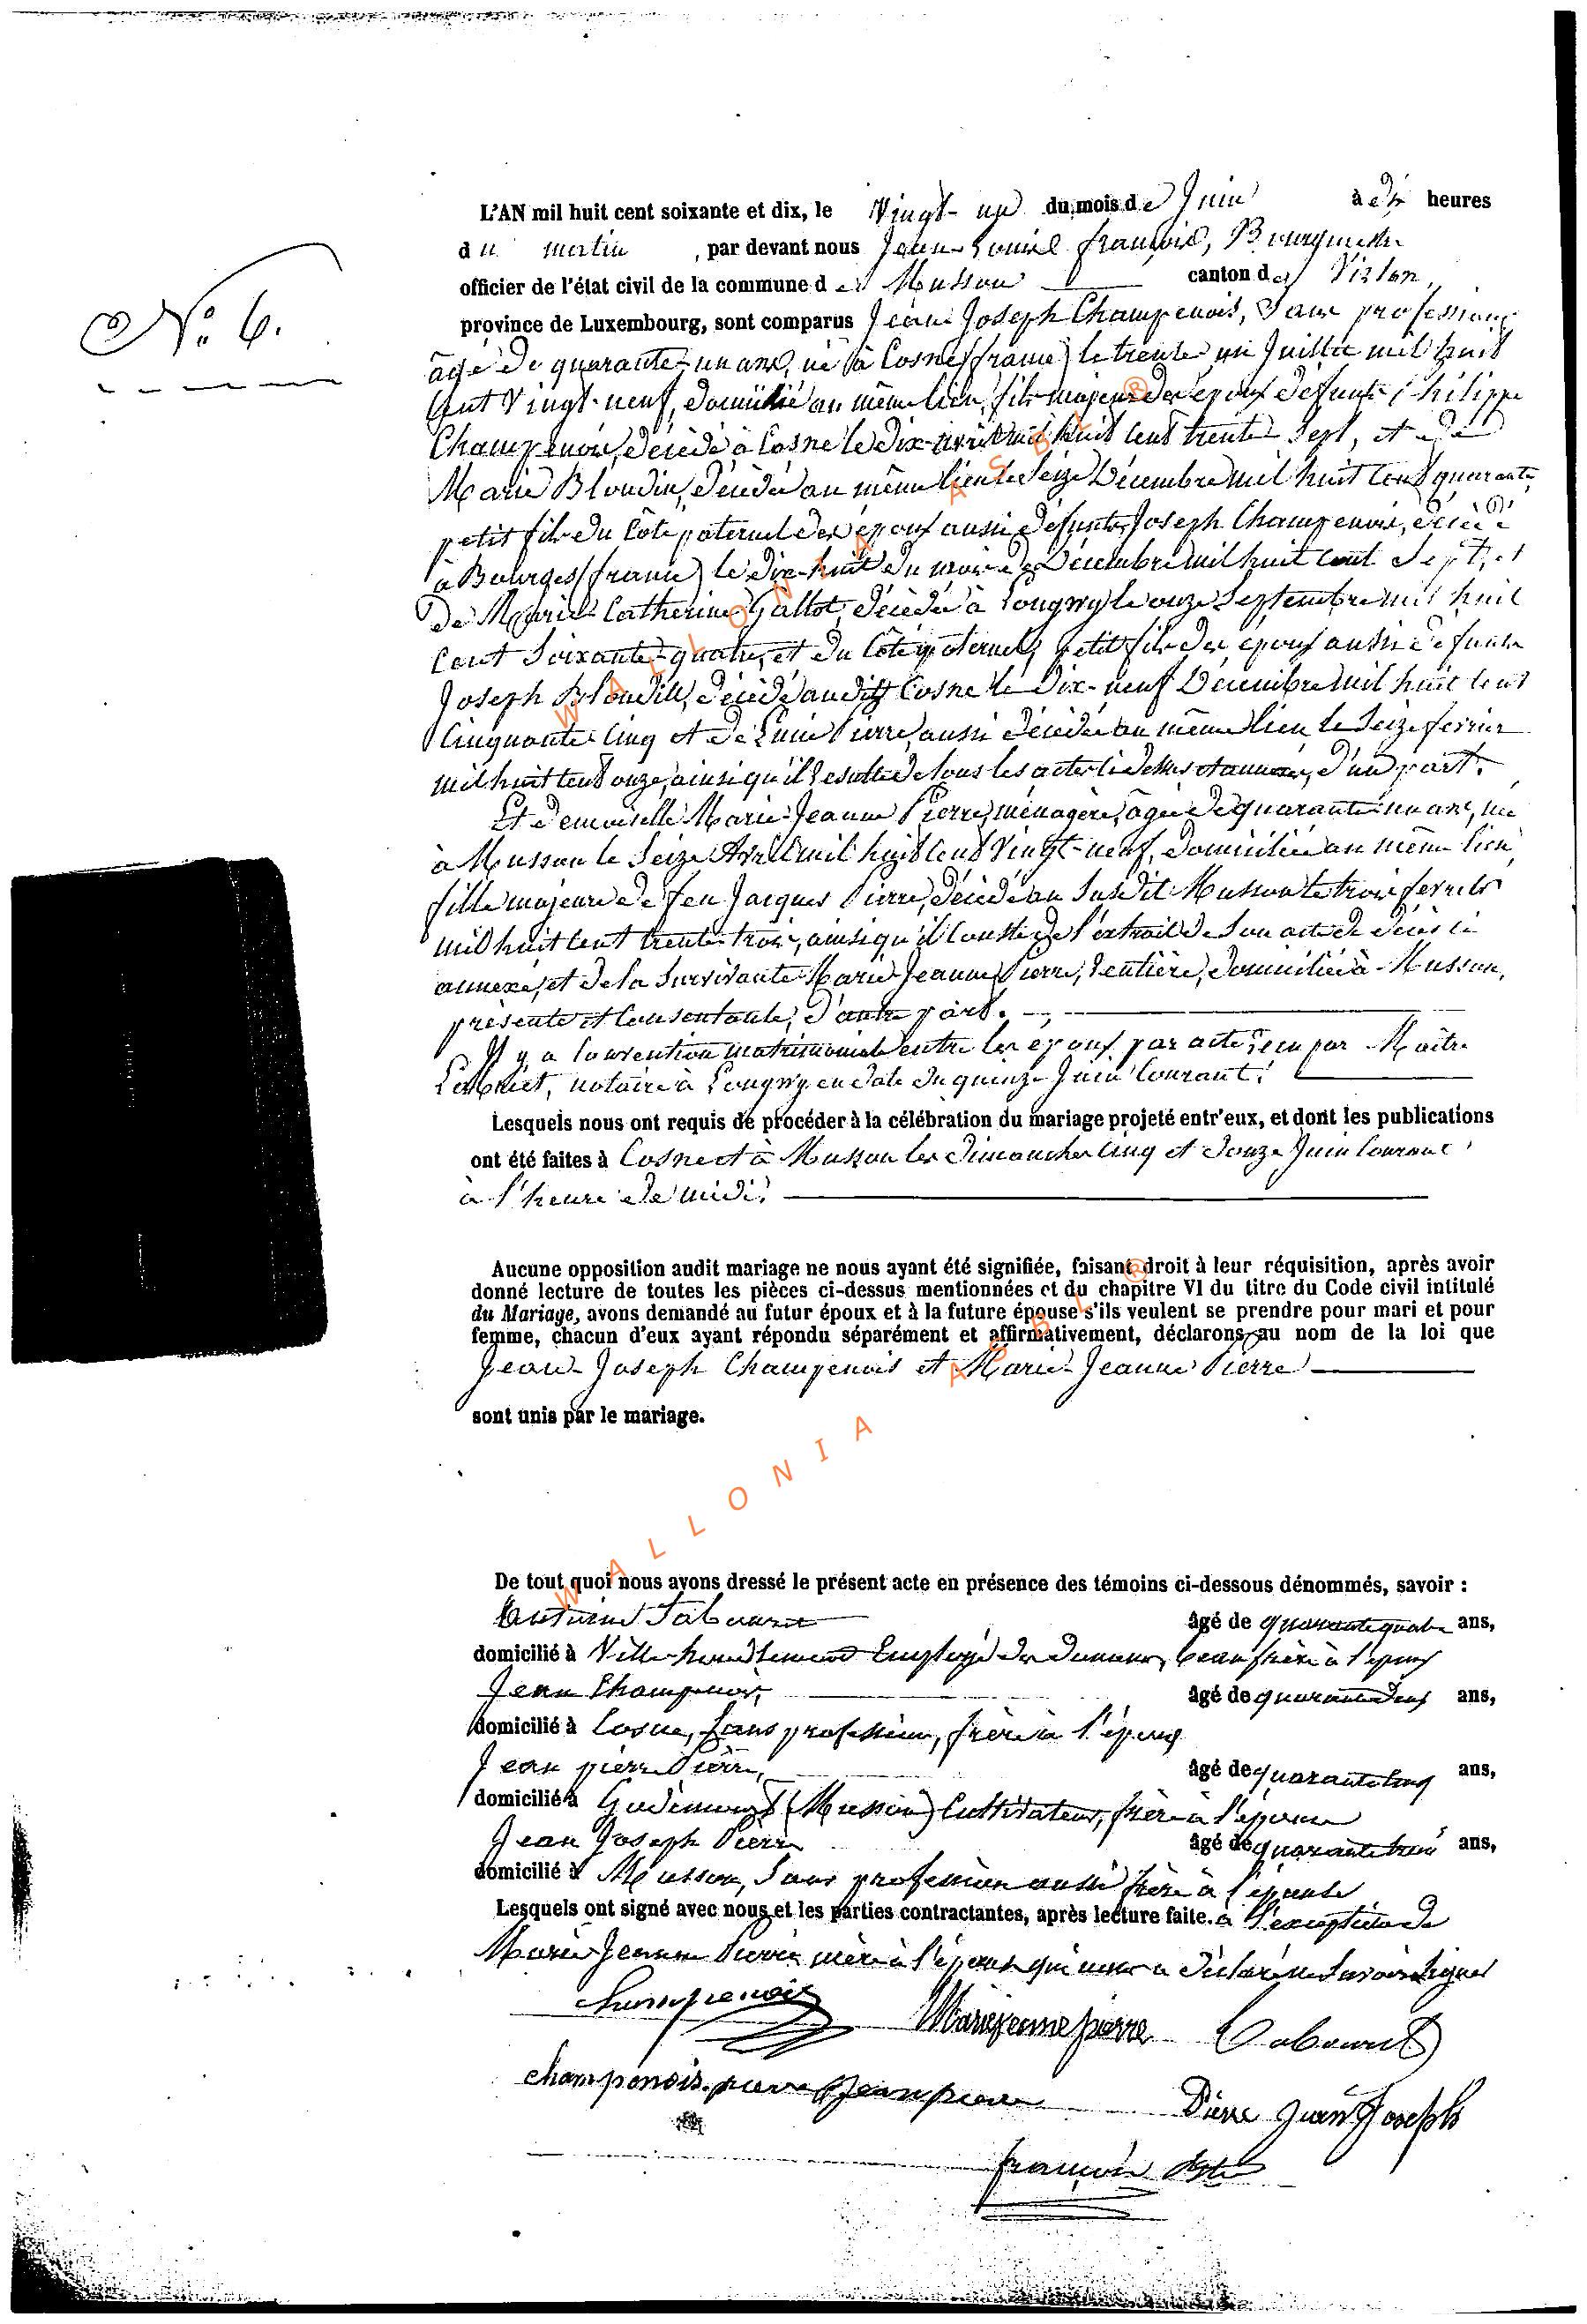 N.º 6.
L'AN mil huit cent soixante et dix, le Vingt-un du mois de Juin à dix heures
du matin, par devant nous Jean-Louis François, Bourgmestre
officier de l'état civil de la commune de Musson canton de Virton,
province de Luxembourg, sont comparus Jean Joseph Champenois, Sans profession,
âgé de quarante-un ans, né à Cosne (france) le trente un Juillet mil huit
cent Vingt-neuf, domicilié au même lieu, fils majeur des époux défunts Philippe
Champenois, décédé à Cosne le dix avril mil huit cent trente Sept, et de
Marie Blondin, décédée au même lieu le Seize Décembre mil huit cent quarante,
petit fils du Côté paternel des époux aussi défunts Joseph Champenois, décédé
à Bourges (france) le dix-huit du mois de Décembre mil huit cent Sept, et
de Marie-Catherine Gallot, décédée à Longwy le onze Septembre mil huit
cent Soixante-quatre, et du Côté maternel, petit fils des époux aussi défunts
Joseph Blondin, décédé audit Cosne le Dix-neuf Décembre mil huit cent
Cinquante Cinq et de Pierre, aussi décédée au même lieu le Seize fevrier
mil huit cent onze, ainsi qu'il resulte de tous les actes ci dessus et annexés, d'une part.
Et demoiselle Marie-Jeanne Pierre, ménagère, âgée de quarante un ans, née
à Musson le Seize Avril mil huit cent Vingt-neuf, domiciliée au même lieu,
fille majeure de feu Jacques Pierre, décédé au Susdit Musson le trois fevrier
mil huit cent trente trois, ainsi qu'il Conste de l'extrait de Son acte de décès ci
annexé, et de la Survivante Marie-Jeanne Pierre, rentière, domiciliée à Musson,
présente et Consentante, d'autre part.
Il y a Convention matrimoniale entre les époux par acte reçu par Maître
notaire à Longwy en date du quinze Juin Courant.
Lesquels nous ont requis de procéder à la célébration du mariage projeté entr'eux, et dont les publications
ont été faites à Cosne et à Musson les Dimanches Cinq et Douze Juin Courant
à l'heure de midi.
Aucune opposition audit mariage ne nous ayant été signifiée, faisant droit à leur réquisition, après avoir
donné lecture de toutes les pièces ci-dessus mentionnées et du chapitre VI du titre du Code civil intitulé
du Mariage, avons demandé au futur époux et à la future épouse s'ils veulent se prendre pour mari et pour
femme, chacun d'eux ayant répondu séparément et affirmativement, déclarons au nom de la loi que
Jean-Joseph Champenois et Marie-Jeanne Pierre
sont unis par le mariage.
De tout quoi nous avons dressé le présent acte en présence des témoins ci-dessous dénommés, savoir :
Antoine Tabouret âgé de quarante quatre ans,
domicilié à Ville-houdlemont Employé des douanes, beau frère à l'époux
Jean Champenois, âgé de quarante deux ans,
domicilié à Cosne, Sans profession, frère à l'époux
Jean pierre Pierre, âgé de quarante cinq ans,
domicilié à (Musson) Cultivateur, frère à l'épouse
Jean Joseph Pierre âgé de quarante trois ans,
domicilié à Musson, Sans profession aussi frère à l'épouse
Lesquels ont signé avec nous et les parties contractantes, après lecture faite. à l'exception de
Marie-Jeanne Pierre mère à l'épouse qui nous a déclaré ne Savoir Signer
Champenois Marie jenne pierre Tabouret
champenois. pierre jean pierre Pierre Jean Joseph
françois
WALLONIA ASBL ®
WALLONIA ASBL ®